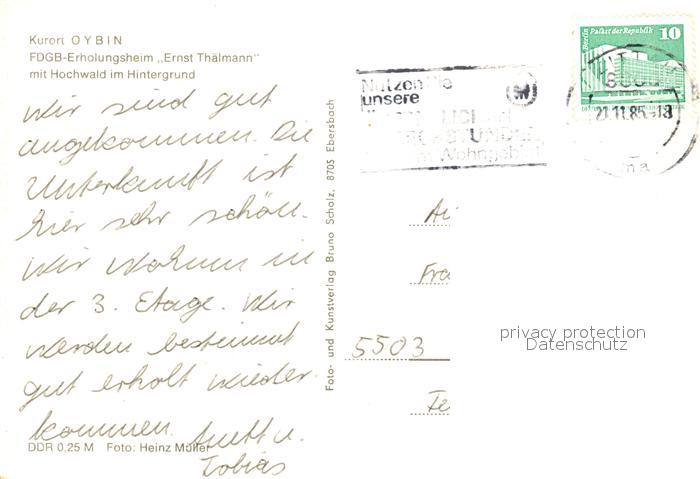 Kurort OYBIN
FDGB-Erholungsheim „Ernst Thälmann"
mit Hochwald im Hintergrund
Wir sind gut
angekommen. Die
Unterkunft ist
hier sehr schön.
Wir wohnen in
der 3. Etage. Wir
werden bestimmt
gut erholt wieder
kommen.
Anett u.
Tobias
DDR 0,25 M Foto: Heinz Müller
Foto- und Kunstverlag Bruno Scholz, 8705 Ebersbach
Nutzen Sie
unsere
STUNDEN
Wohngeb
Berlin Palast der Republik
10
21.11.85-18
An
Fra
5503
privacy protection
Datenschutz